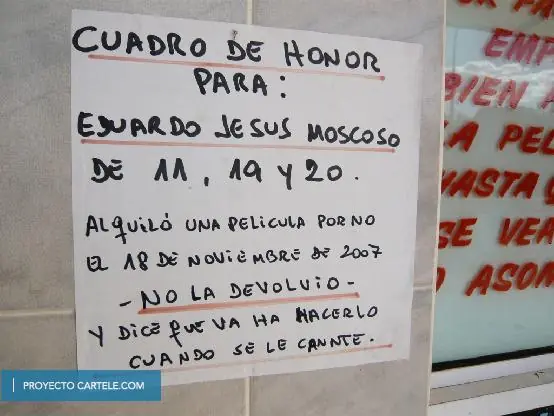 CUADRO DE HONOR
PARA:
EDUARDO JESUS MOSCOSO
DE 11, 19 Y 20.
ALQUILÓ UNA PELICULA PORNO
EL 18 DE NOVIEMBRE DE 2007
- NO LA DEVOLVIO -
Y DICE QUE VA HA HACERLO
CUANDO SE LE CANNTE.
EMP
BIEN
A PEL
HASTA
SE VER
ASOM
PROYECTO CARTELE.COM